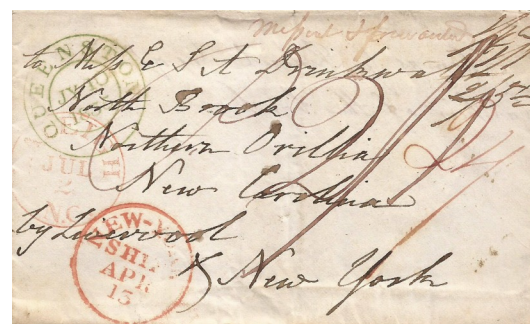 Missent & forwarded
to Mrs E S A Drinkwater
North Brook
Northern Orillia
New Carolina
by Liverwood
& New York
QUEENSTON
JY 10
JUL
2
N.C.
NEW-
SHIP
APR
15